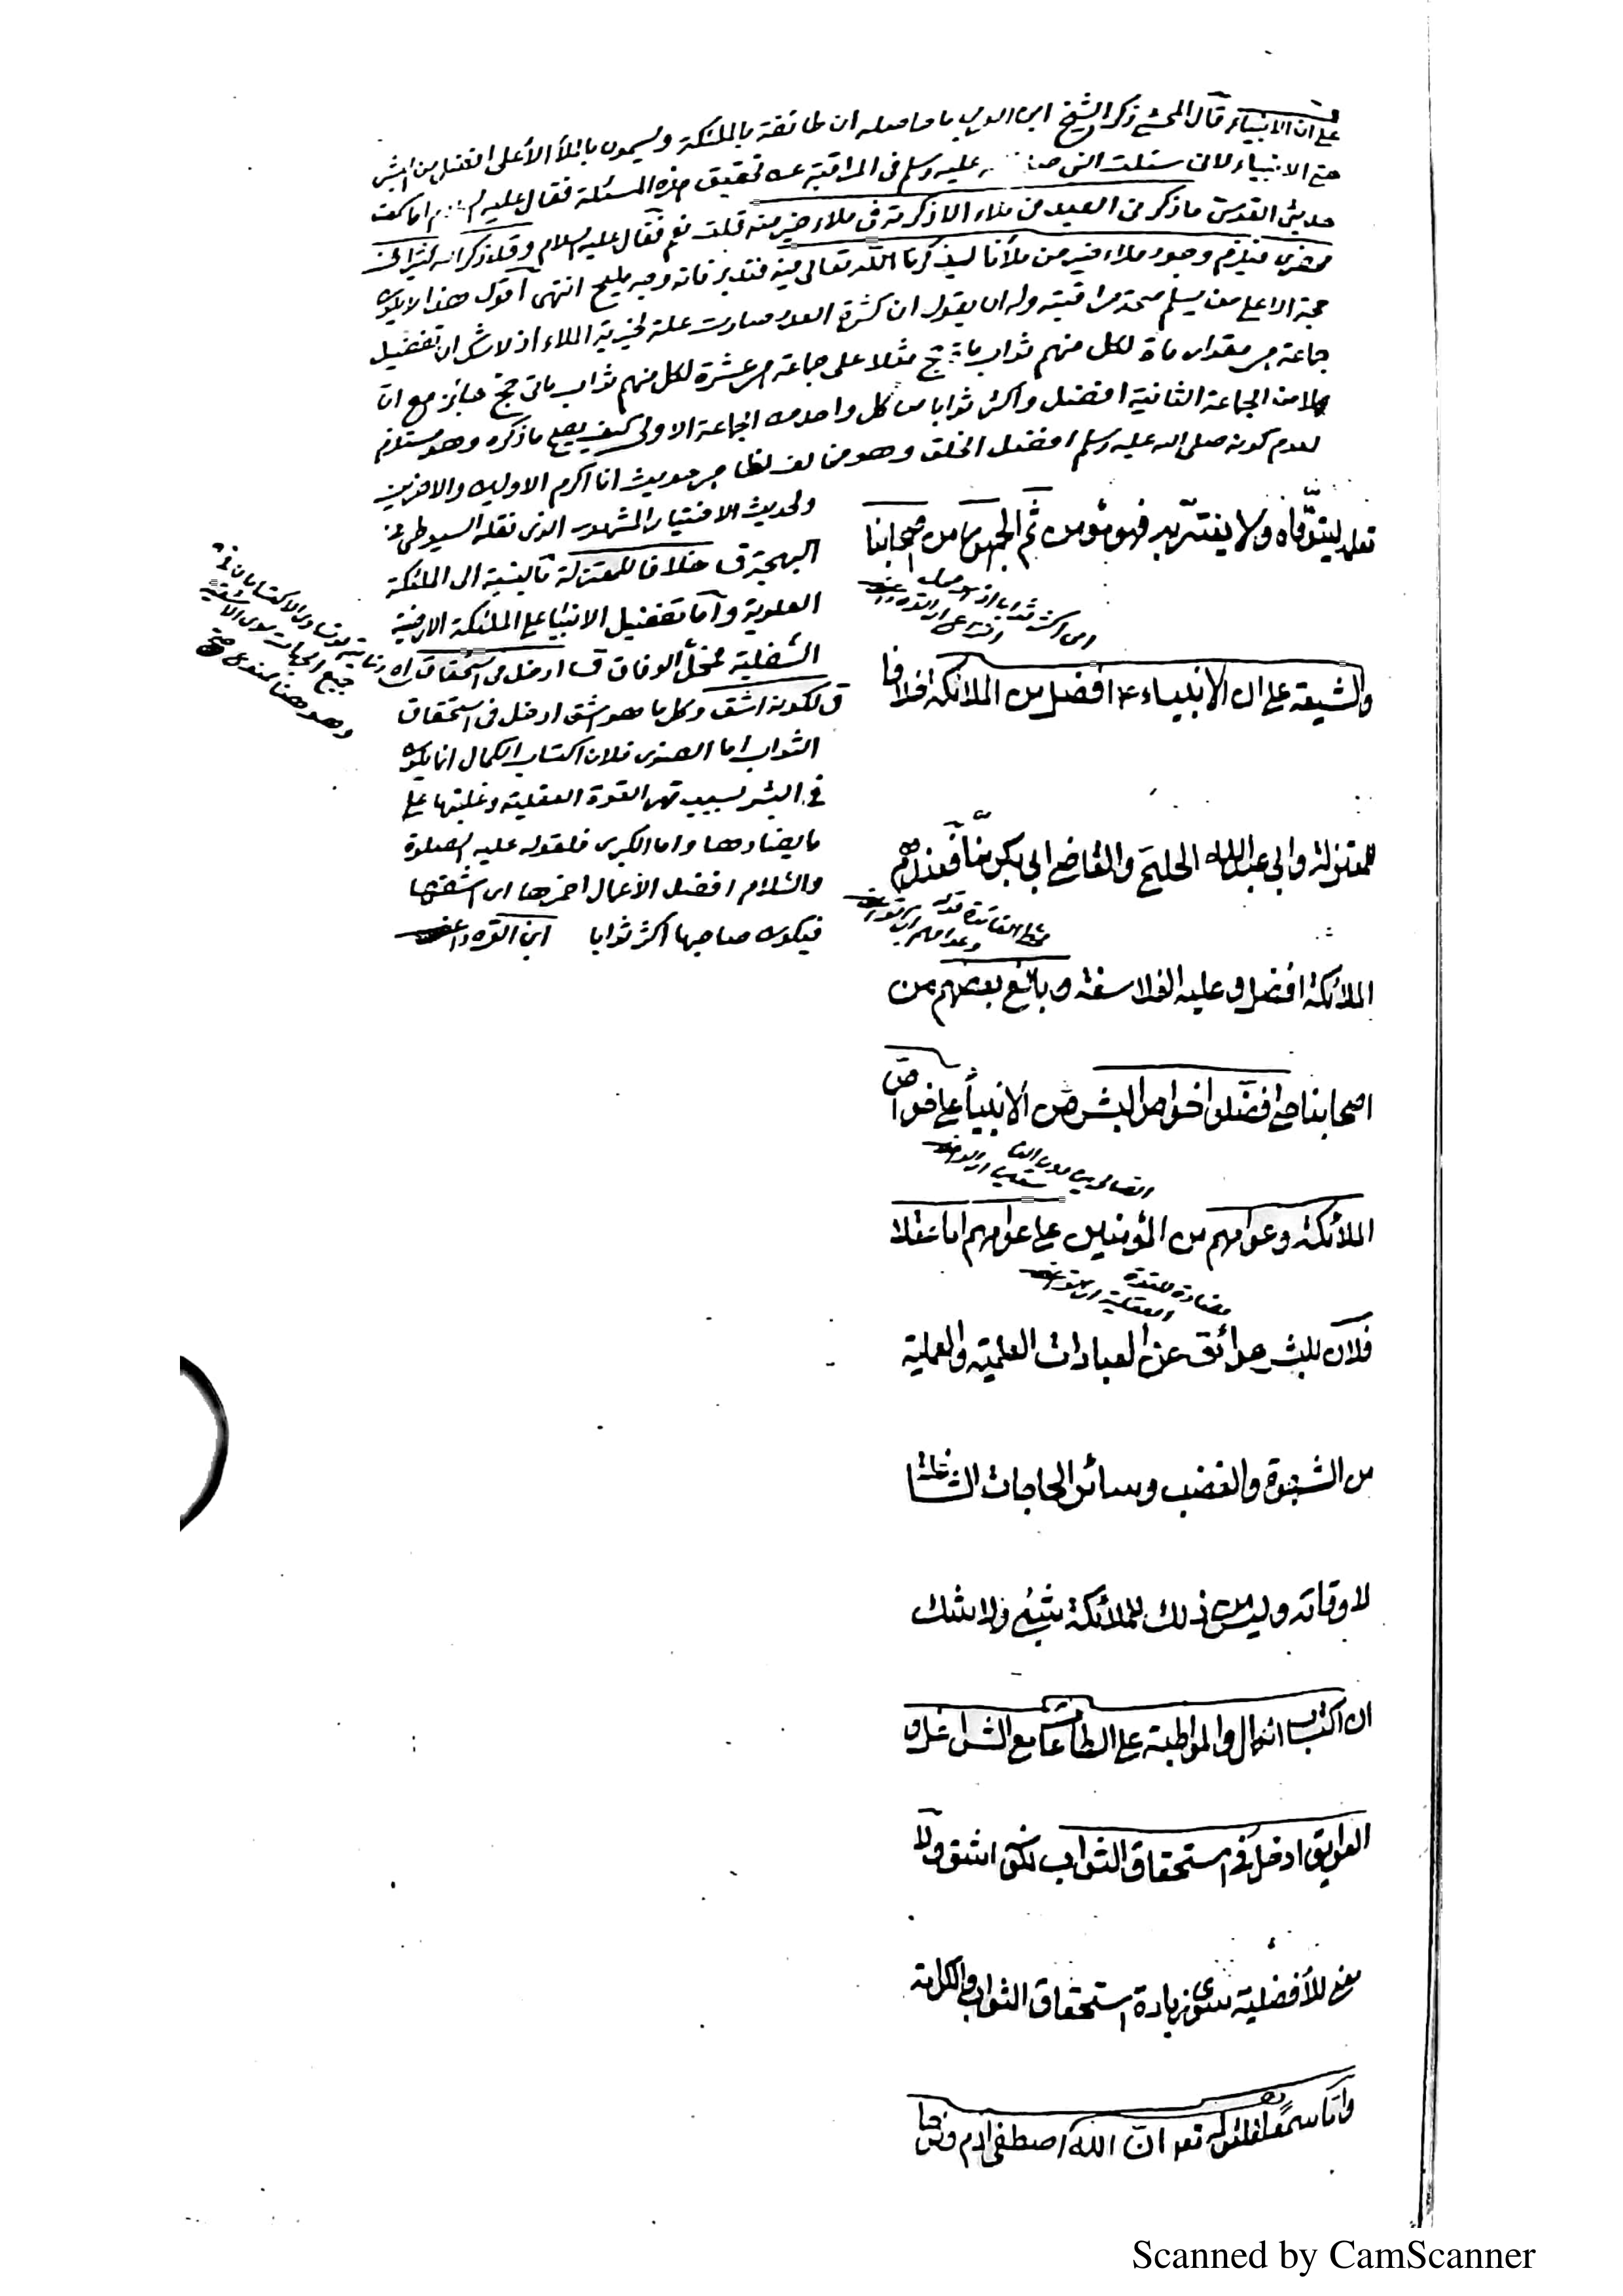 على ان الانبياء قال المحشي ذكر الشيخ ابن العربي ما حاصله ان طائفة بالملئكة ويسمون بالملأ الأعلى افضل من البشر
حتى الانبياء لاني سئلت النبي عليه وسلم في المراقبة عن تحقيق هذه المسئلة فقال عليه اما كفت
حديثي القدسي ما ذكرني العبد في ملاء الا ذكرته في ملاء خير منه قلت نعم فقال عليه السلام وقد ذكر الله كثيرا في
محضري فيلزم وجود ملاء خير من ملأنا ليذكرنا الله تعالى فيه فتدبر فانه وجه مليح انتهى اقول هذا لا يكون
حجة الا على من يسلم صحة مراقبته وله ان يقول ان كثرة العدد صارت علة لخيرية الملاء اذ لا شك ان تفضيل
جماعة هي مقدار مأة لكل منهم ثواب حج مثلا على جماعة هي عشرة لكل منهم ثواب مائتي حج جائز مع ان
كلا من الجماعة الثانية افضل واكثر ثوابا من كل واحد من الجماعة الاولى كيف يصح ما ذكره وهو مستلزم
لعدم كونه صلى الله عليه وسلم افضل الخلق وهو مخالف لظاهر حديث انا اكرم الاولين والاخرين
ولحديث الاختيار المشهور الذي نقله السيوطي في
البهجة ق خلافا للمعتزلة بالنسبة الى الملئكة
العلوية وأما تفضيل الانبياء على الملئكة الارضية
السفلية فمحل الوفاق ق ادخل في استحقاق
ق لكونه اشق وكل ما هو اشق ادخل في استحقاق
الثواب اما الصغرى فلان اكتساب الكمال انما يكون
في البشر بسبب قهر القوة العقلية وغلبتها على
ما يضادها واما الكبرى فلقوله عليه الصلوة
والسلام افضل الأعمال احمزها اى اشقها
فيكون صاحبها اكثر ثوابا ابن القره داغي
جميع الجهات سوى الأشقية
وهو هنا ممنوع
تعلمه ليتوقاه ولا يغتر به فهو مؤمن ثم الجمهور من اصحابنا
اى اكثر ثوابا
والشيعة على ان الانبياء ع افضل من الملائكة خلافا
للمعتزلة وابي عبد الله الحليمي والقاضي ابي بكر منا فعندهم
الملائكة افضل وعليه الفلاسفة وبالغ بعضهم من
اصحابنا حتى فضلوا خواص البشر من الانبياء على خواص
الملائكة وعوامهم من المؤمنين على عوامهم اما عقلا
مضادة للقوة
العقلية
فلان للبشر عوائق عن العبادات العلمية والعملية
من الشهوة والغضب وسائر الحاجات الشاغلة
لاوقاته وليس من ذلك للملائكة شيئ ولا شك
ان اكتساب الكمال والمواظبة على الطاعات مع الشواغل و
العوايق ادخل في استحقاق الثواب لكونه اشق ولا
معنى للأفضلية سوى زيادة استحقاق الثواب والكرامة
واما سمعا فلقوله تعه ان الله اصطفى ادم ونوحا
Scanned by CamScanner